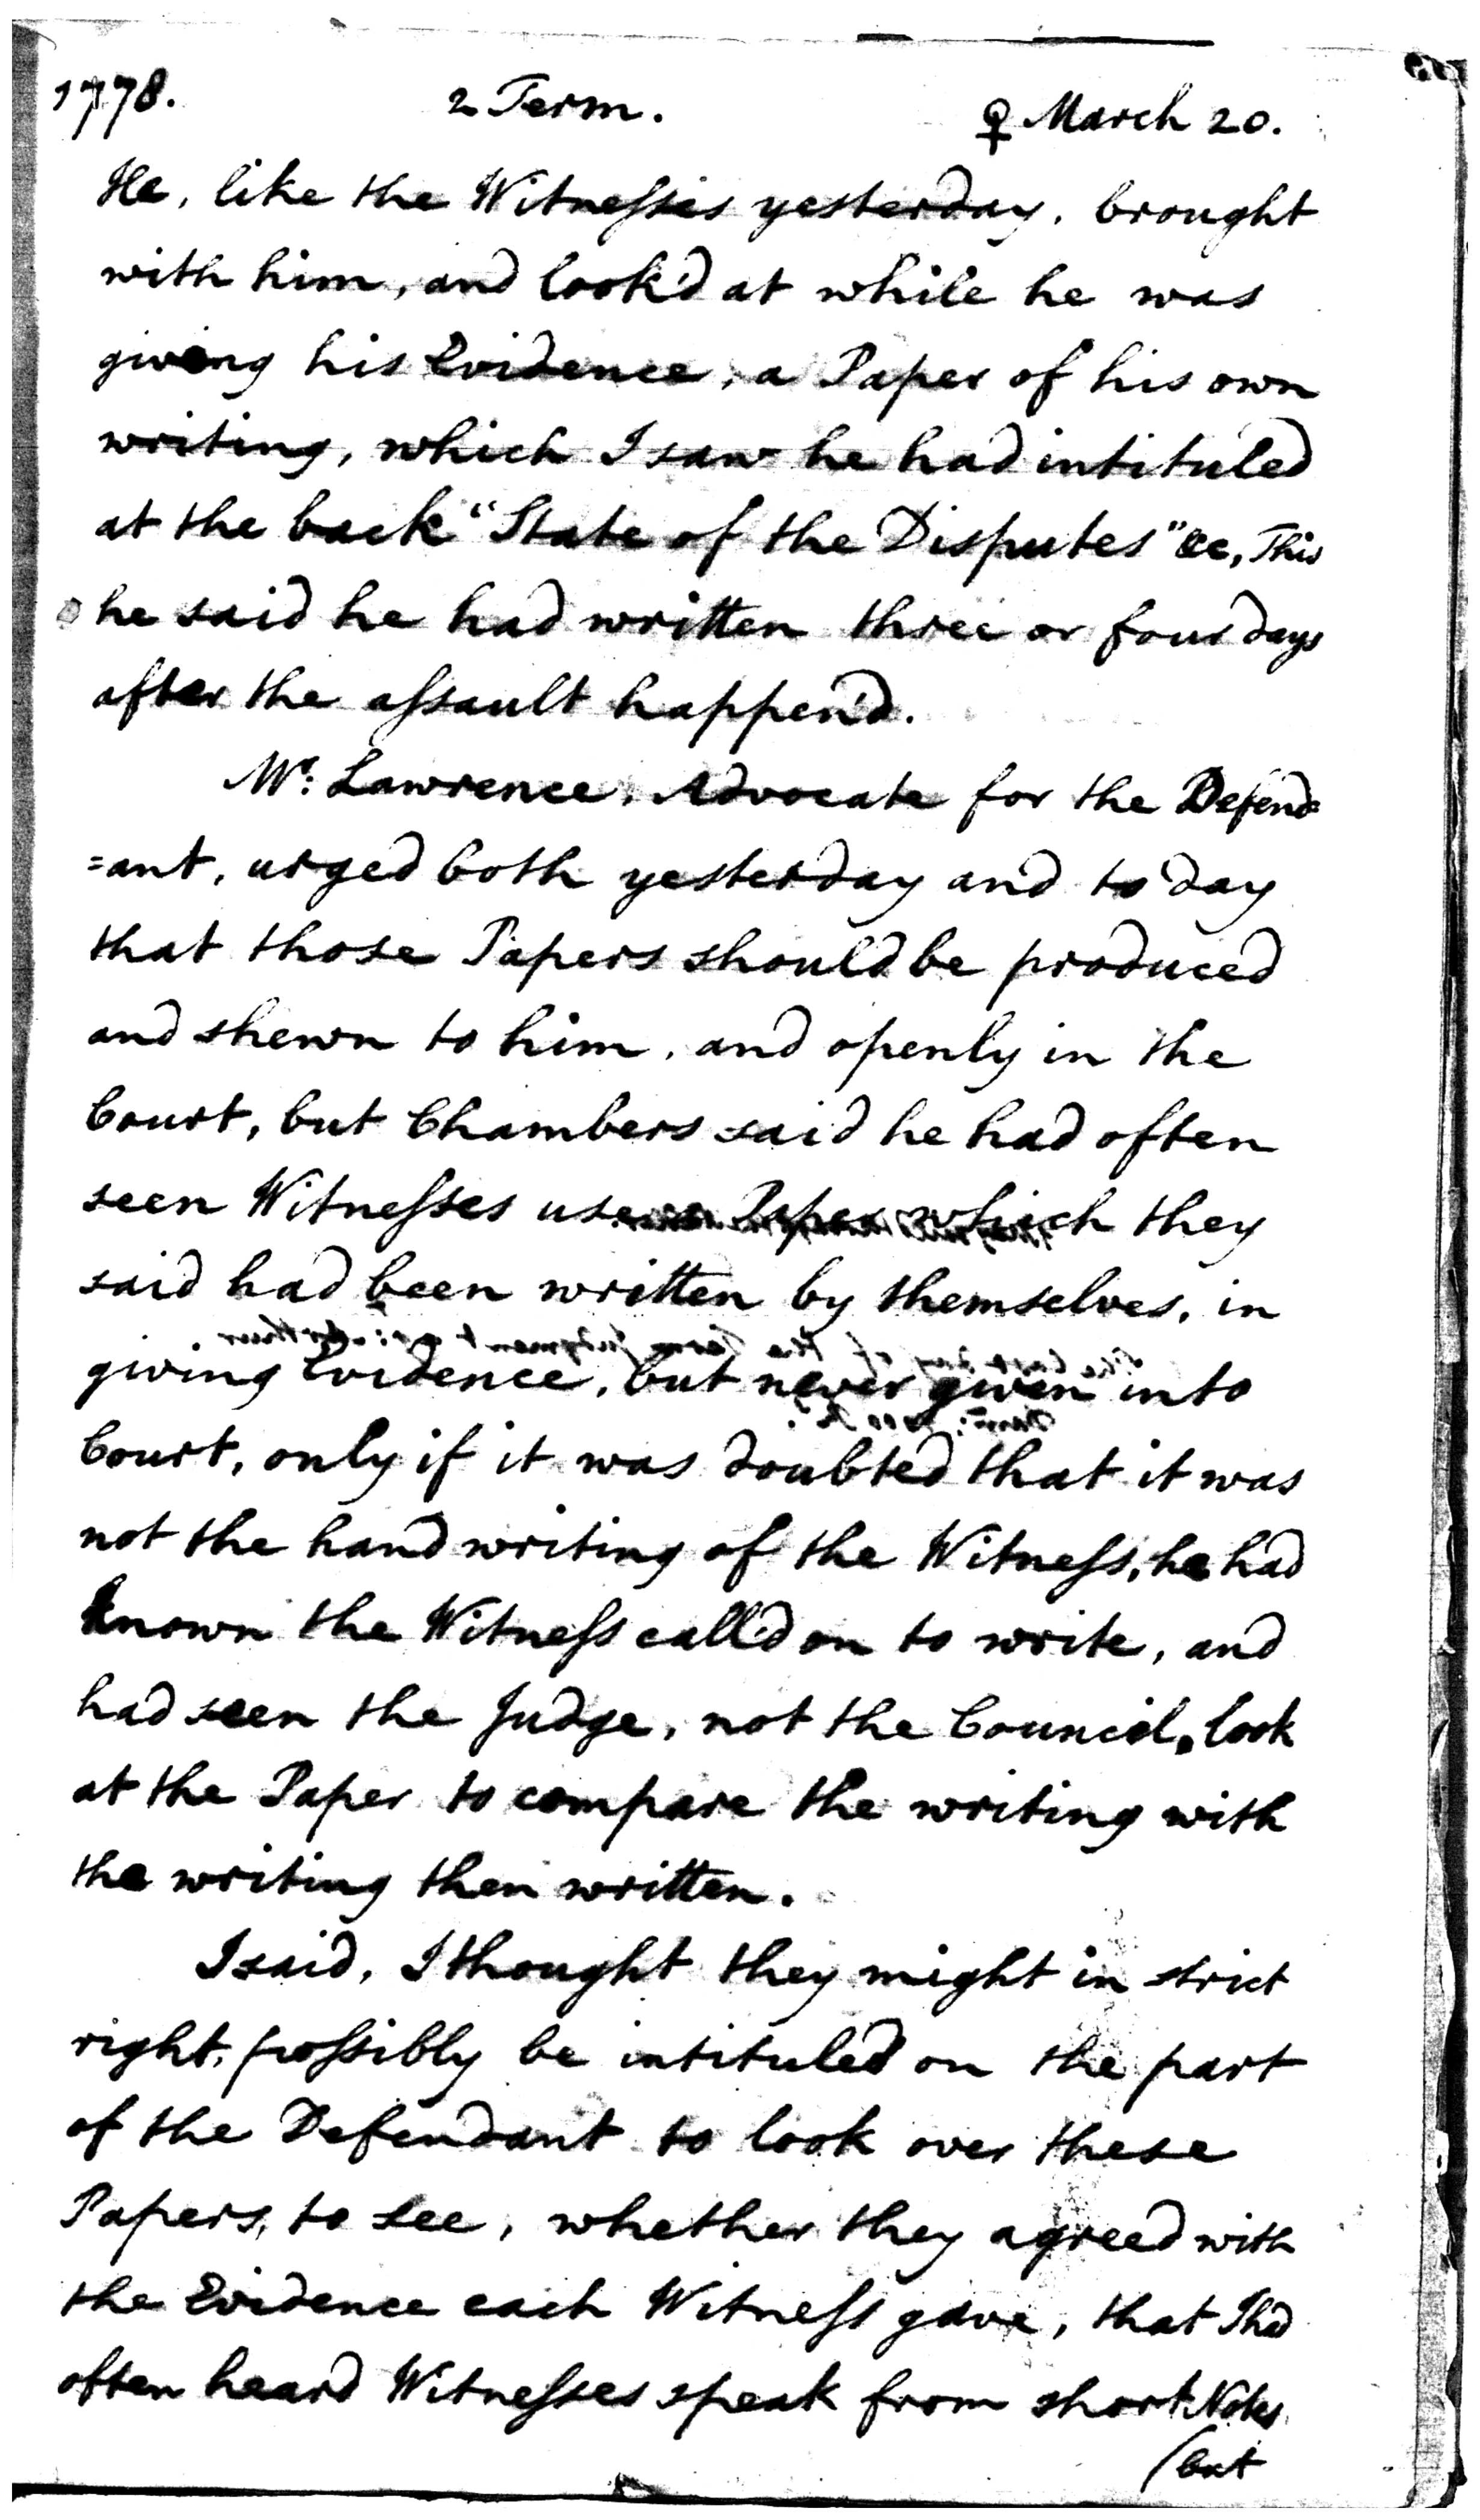 1778. 2 Term. ♀ March 20.
He, like the Witnesses yesterday, brought
with him, and look'd at while he was
giving his Evidence, a Paper of his own
writing, which I saw he had intituled
at the back "State of the Disputes" &c, This
he said he had written three or four days
after the assault happen'd.
Mr. Lawrence, Advocate for the Defend=
=ant, urged both yesterday and to day
that those Papers should be produced
and shewn to him, and openly in the
Court, but Chambers said he had often
seen Witnesses use a Paper which they
said had been written by themselves, in
giving Evidence, but never given into
Court, only if it was doubted that it was
not the hand writing of the Witness, he had
known the Witness call'd on to write, and
had seen the Judge, not the Council, look
at the Paper to compare the writing with
the writing then written.
I said, I thought they might in strict
right, possibly be intituled on the part
of the Defendant to look over these
Papers, to see, whether they agreed with
the Evidence each Witness gave, that I had
often heard Witnesses speak from short Notes
(but